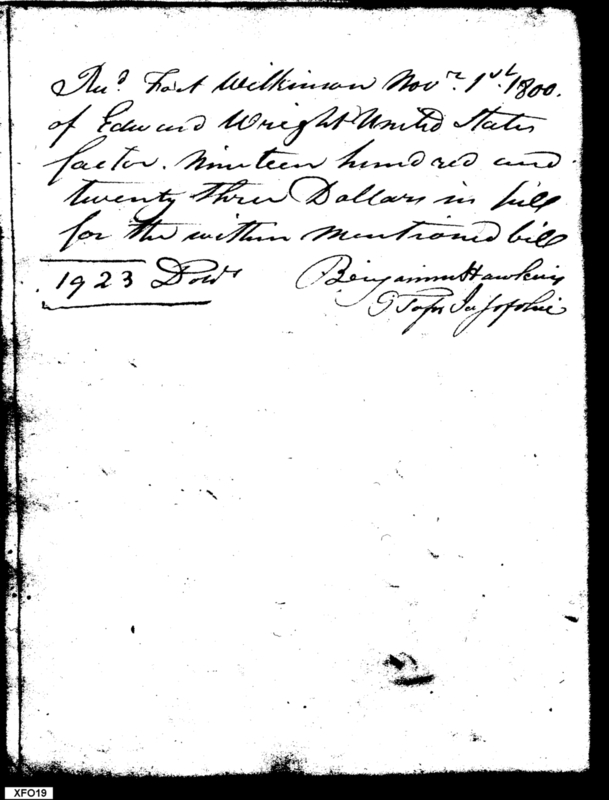 Recd Fort Wilkinson Novr. 1st. 1800.
of Edward Wright United States
factor. Nineteen hundred and
twenty three Dollars in full
for the within mentioned bill
1923 Dolls Benjamin Hawkins
XFO19